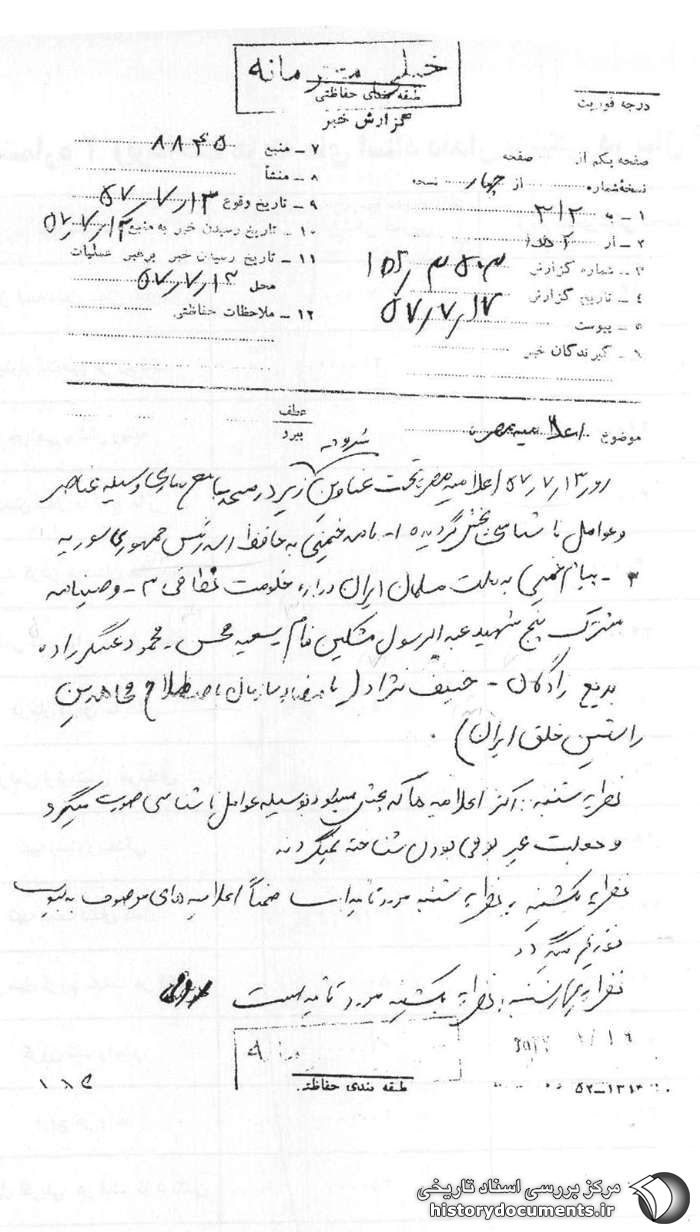 خیلی محرمانه
طبقه بندی حفاظتی
گزارش خبر
درجه فوریت
صفحه یکم از صفحه
نسخه شماره از چهار نسخه
۱ - به ۳۱۲
۲ - از
۳ - شماره گزارش
۴ - تاریخ گزارش ۵۷٫۷٫۱۷
۵ - پیوست
۶ - گیرندگان خبر
۷ - منبع ۸۸۴۵
۸ - منشأ
۹ - تاریخ وقوع ۵۷٫۷٫۱۳
۱۰ - تاریخ رسیدن خبر به منبع ۵۷٫۷٫۱۳
۱۱ - تاریخ رسیدن خبر برهبر عملیات
محل ۵۷٫۷٫۱۳
۱۲ - ملاحظات حفاظتی
موضوع اعلامیه مضره
عطف
پیرو
مشروحه
روز ۵۷٫۷٫۱۳ اعلامیه مضره تحت عناوین زیر در صحن مسجد جامع ساری وسیله عناصر
و عوامل ناشناسی پخش گردیده ۱- نامه خمینی به حافظ اسد رئیس جمهوری سوریه
۲- پیام خمینی به ملت مسلمان ایران درباره حکومت نظامی ۳- وصیتنامه
مشترک پنج شهید عبدالرسول مشکین فام سعید محسن - محمود عسگرزاده
بدیع زادگان - حنیف نژاد (با امضاء سازمان باصطلاح مجاهدین
راستین خلق ایران).
نظریه شنبه: اکثر اعلامیه ها که پخش میشود توسیله عوامل ناشناسی صورت میگیرد
و بعلت غیر بومی بودن شناخته نمیگردند
نظریه یکشنبه: نظریه شنبه مورد تائید است ضمناً اعلامیه های موصوف به پیوست
تقدیم میگردد
نظریه چهارشنبه: نظریه یکشنبه مورد تائید است
طبقه بندی حفاظتی
مرکز بررسی اسناد تاریخی
historydocuments.ir